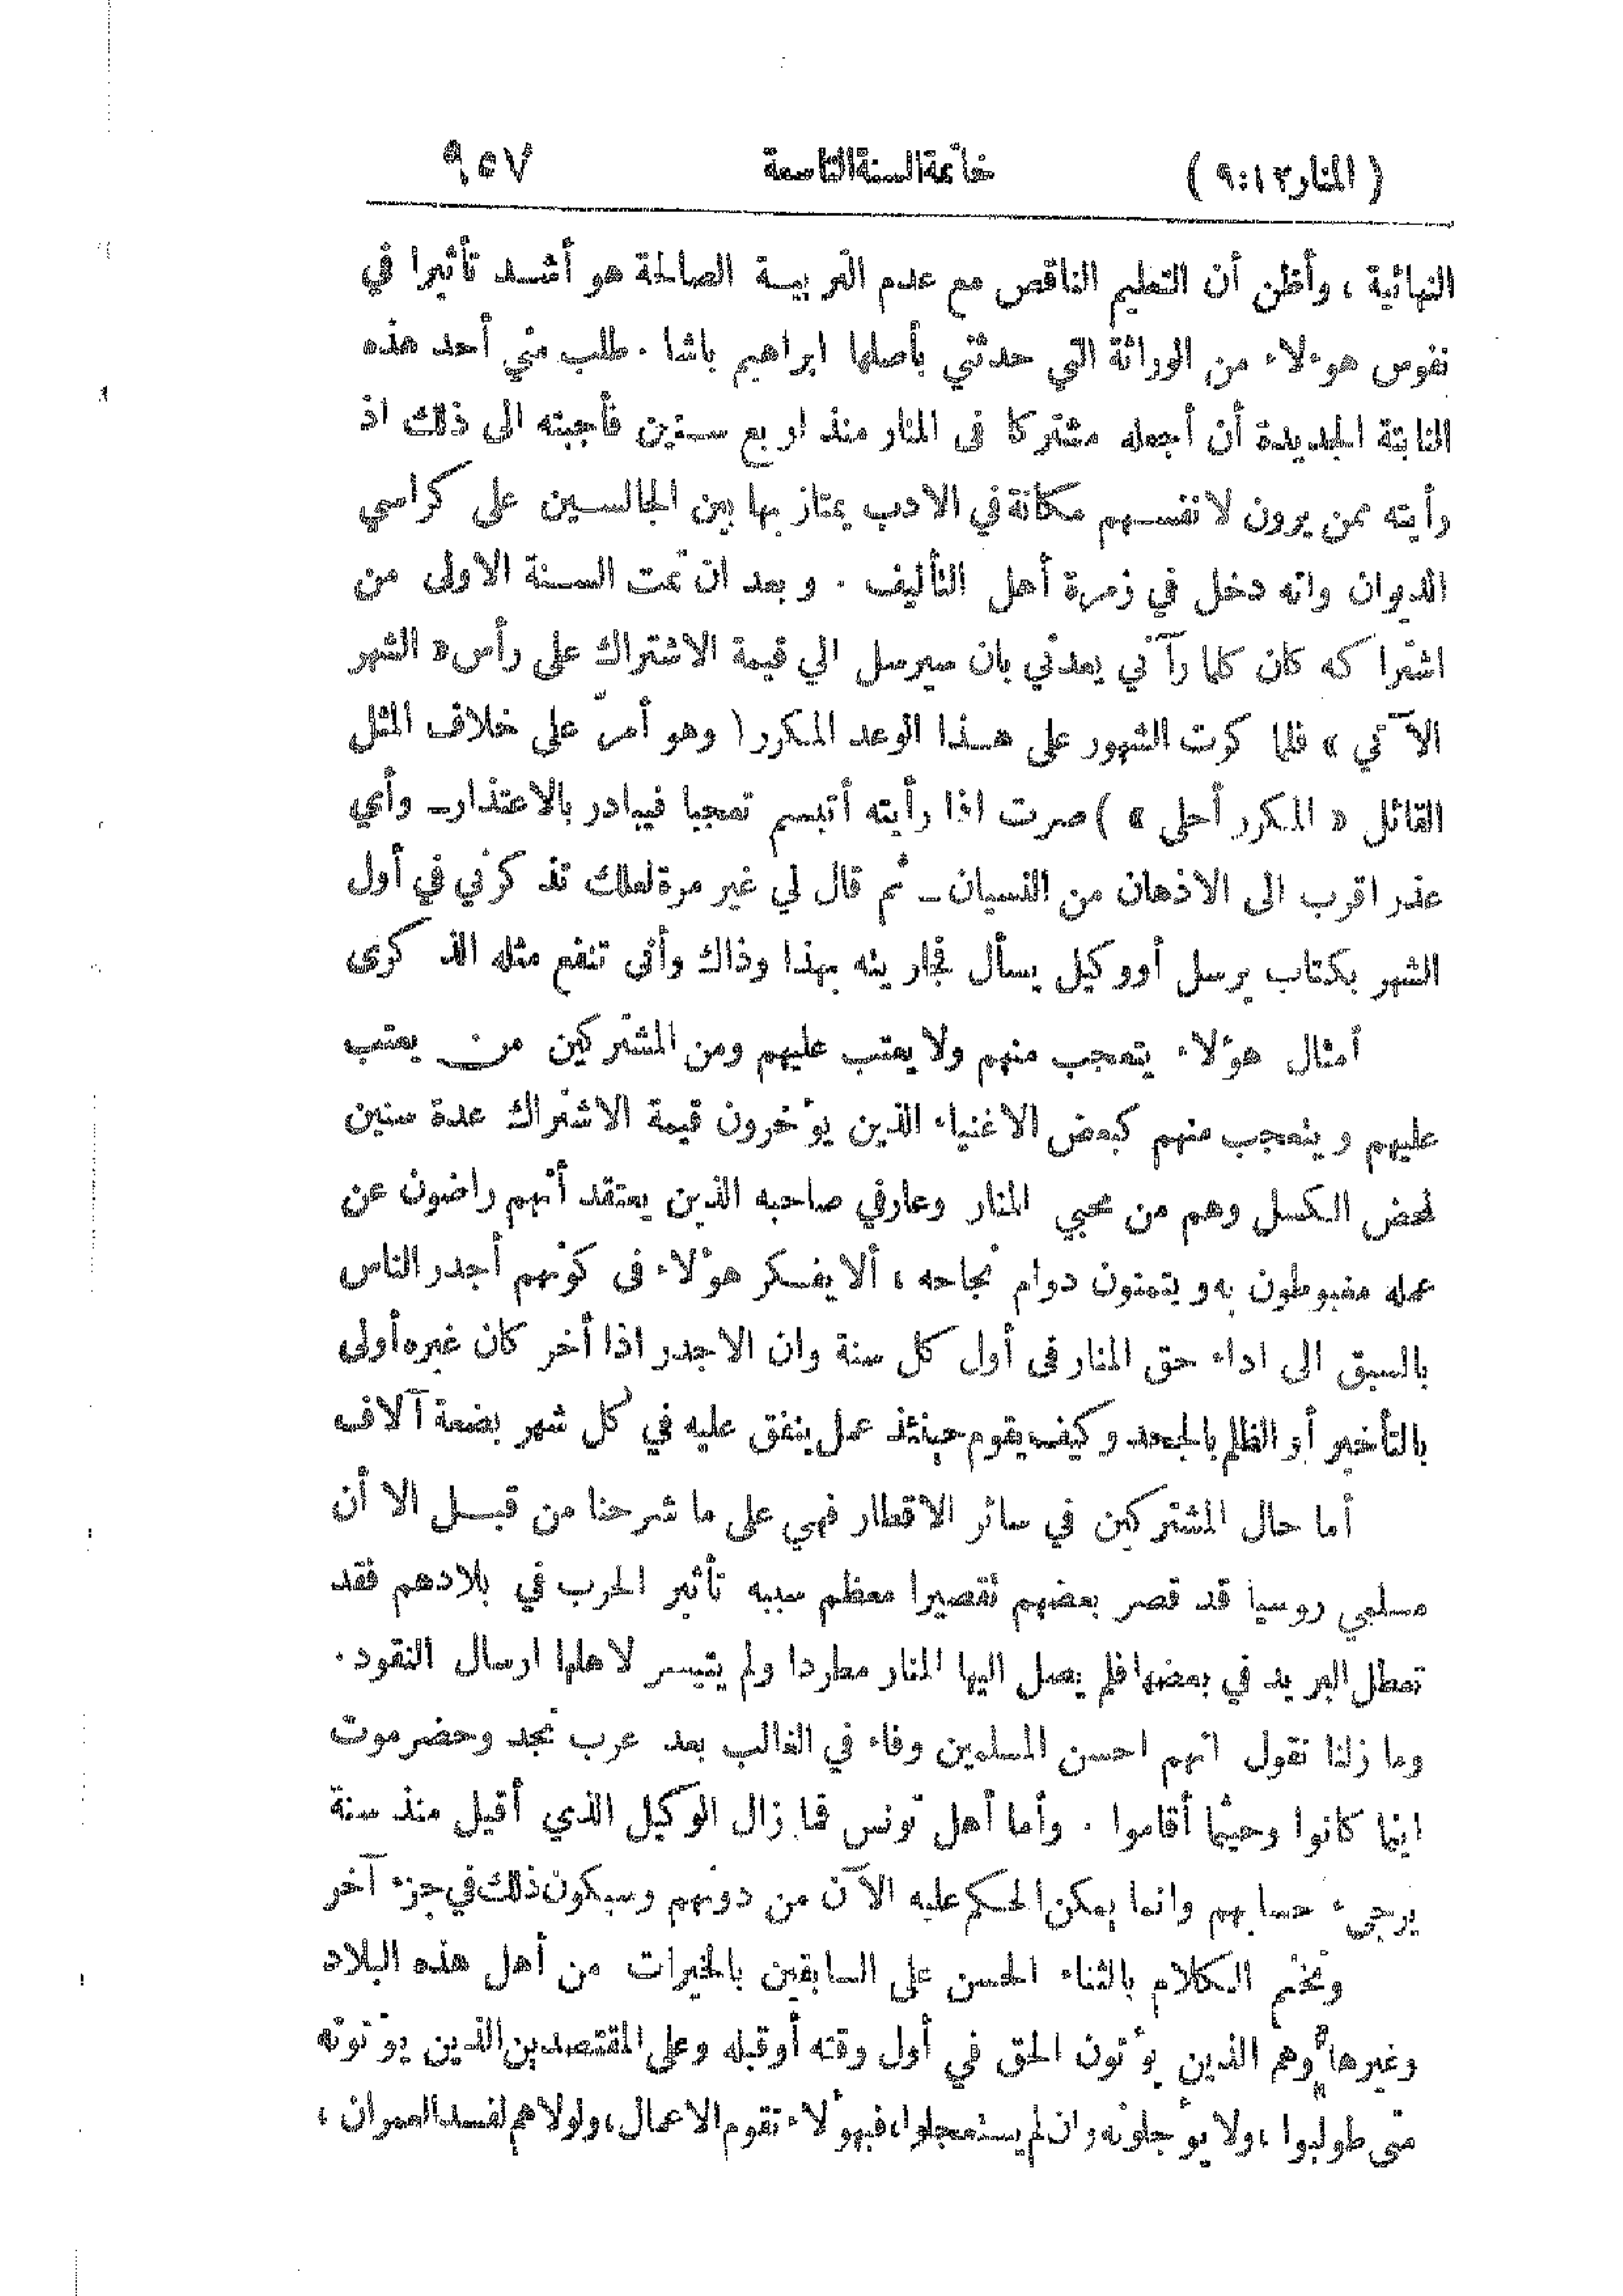 ( المنار ١٢ : ٩ ) خاتمة السنة التاسعة ٩٥٧
النهائية ، وأظن أن التعليم الناقص مع عدم التربية الصالحة هو أشد تأثيرا في
نفوس هؤلاء من الوراثة التي حدثني بأصلها ابراهيم باشا . طلب مني أحد هذه
النابتة الجديدة أن أجعله مشتركا فى المنار منذ اربع سنين فأجبته الى ذلك اذ
رأيته ممن يرون لانفسهم مكانة في الادب يمتاز بها بين الجالسين على كراسي
الديوان وانه دخل في زمرة أهل التأليف . وبعد ان تمت السنة الاولى من
اشتراكه كان كلما رآني يعدني بان سيرسل الي قيمة الاشتراك على رأس « الشهر
الآتي » فلما كرت الشهور على هذا الوعد المكرر ( وهو أمرّ على خلاف المثل
القائل « المكرر أحلى » ) صرت اذا رأيته أتبسم تعجبا فيبادر بالاعتذار ــ وأي
عذر اقرب الى الاذهان من النسيان ــ ثم قال لي غير مرة لعلك تذكرني في أول
الشهر بكتاب يرسل أو وكيل يسأل فجاريته بهذا وذاك وأنى تنفع مثله الذكرى
أمثال هؤلاء يتعجب منهم ولا يعتب عليهم ومن المشتركين من يعتب
عليهم ويتعجب منهم كبعض الاغنياء الذين يؤخرون قيمة الاشتراك عدة سنين
لمحض الكسل وهم من محبي المنار وعارفي صاحبه الذين يعتقد أنهم راضون عن
عمله مغبوطون به ويتمنون دوام نجاحه ، ألا يفكر هؤلاء فى كونهم أجدر الناس
بالسبق الى اداء حق المنار فى أول كل سنة وان الاجدر اذا أخر كان غيره أولى
بالتأخير أو الظلم بالجحد وكيف يقوم حينئذ عمل ينفق عليه في كل شهر بضعة آلاف
أما حال المشتركين في سائر الاقطار فهي على ما شرحنا من قبل الا أن
مسلمي روسيا قد قصر بعضهم تقصيرا معظم سببه تأثير الحرب في بلادهم فقد
تعطل البريد في بعضها فلم يصل اليها المنار مطردا ولم يتيسر لاهلها ارسال النقود .
وما زلنا نقول انهم احسن المسلمين وفاء في الغالب بعد عرب نجد وحضرموت
اينما كانوا وحيثما أقاموا . وأما أهل تونس فما زال الوكيل الذي أقيل منذ سنة
يرجىء حسابهم وانما يمكن الحكم عليه الآن من دونهم وسيكون ذلك في جزء آخر
ونختم الكلام بالثناء الحسن على السابقين بالخيرات من أهل هذه البلاد
وغيرها وهم الذين يؤتون الحق في أول وقته أو قبله وعلى المقتصدين الذين يؤتونه
متى طولبوا ، ولا يؤجلونه وان لم يستعجلوا ، فبهؤلاء تقوم الاعمال ، ولولاهم لفسد العمران ،